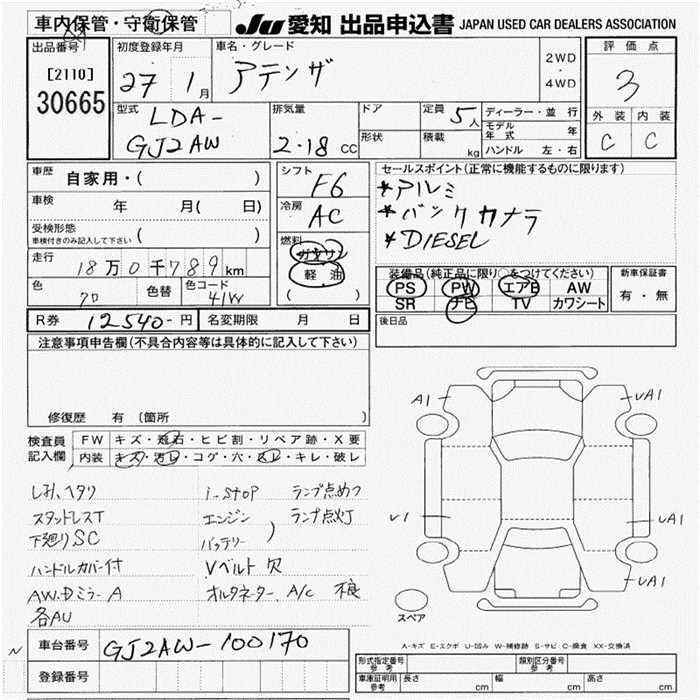 車内保管・守衛保管
JU 愛知 出品申込書 JAPAN USED CAR DEALERS ASSOCIATION
出品番号
[2110]
30665
初度登録年月
27 1月
車名・グレード
アテンザ
2WD
・
4WD
評価点
3
外装 内装
C C
型式
LDA-
GJ2AW
排気量
2.18 CC
ドア
形状
定員 5人
積載 kg
ディーラー・並行
モデル年式 年
ハンドル 左・右
車歴
自家用・( )
車検
年 月( 日)
受検形態
車検付きのみ記入して下さい ( )
走行
18万0千789km
色 色替 色コード
クロ 41W
シフト
F6
冷房
AC
燃料
ガソリン
軽油
( )
セールスポイント(正常に機能するものに限ります)
*アルミ
*バックカメラ
*DIESEL
装備品(純正品に限り○をつけてください)
PS PW エアB AW
SR ナビ TV カワシート
新車保証書
有・無
後日品
R券 12540-円 名変期限 月 日
注意事項申告欄(不具合内容等は具体的に記入して下さい)
修復歴 有(箇所 )
検査員
記入欄
FW キズ・飛石・ヒビ割・リペア跡・X要
内装 キズ・汚レ・コゲ・穴・スレ・キレ・破レ
しみ、ヘタリ
スタッドレスT
下廻りSC
ハンドルカバー付
AW.Dミラー A
各AU
i-stop ランプ点めつ
エンジン ランプ点灯
バッテリー )
Vベルト 欠
オルタネーター. A/C 不良
A1
UA1
U1
UA1
UA1
スペア
A-キズ E-エクボ U-凹み W-補修跡 S-サビ C-腐食 XX-交換済
N
車台番号 GJ2AW-100170
登録番号
形式指定番号 参考
類別区分番号 参考
車庫証明用 参考 長さ cm 幅 cm 高さ cm